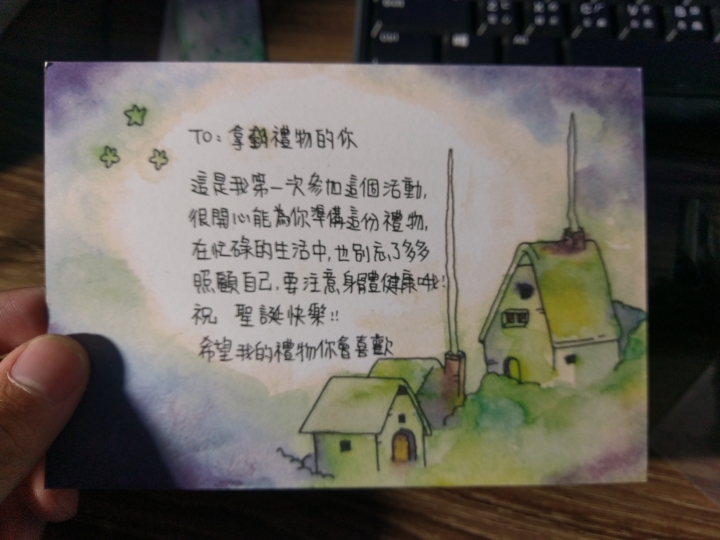 TO: 拿到禮物的你
這是我第一次參加這個活動,
很開心能為你準備這份禮物,
在忙碌的生活中,也別忘了多多
照顧自己,要注意身體健康哦!
祝 聖誕快樂!!
希望我的禮物你會喜歡